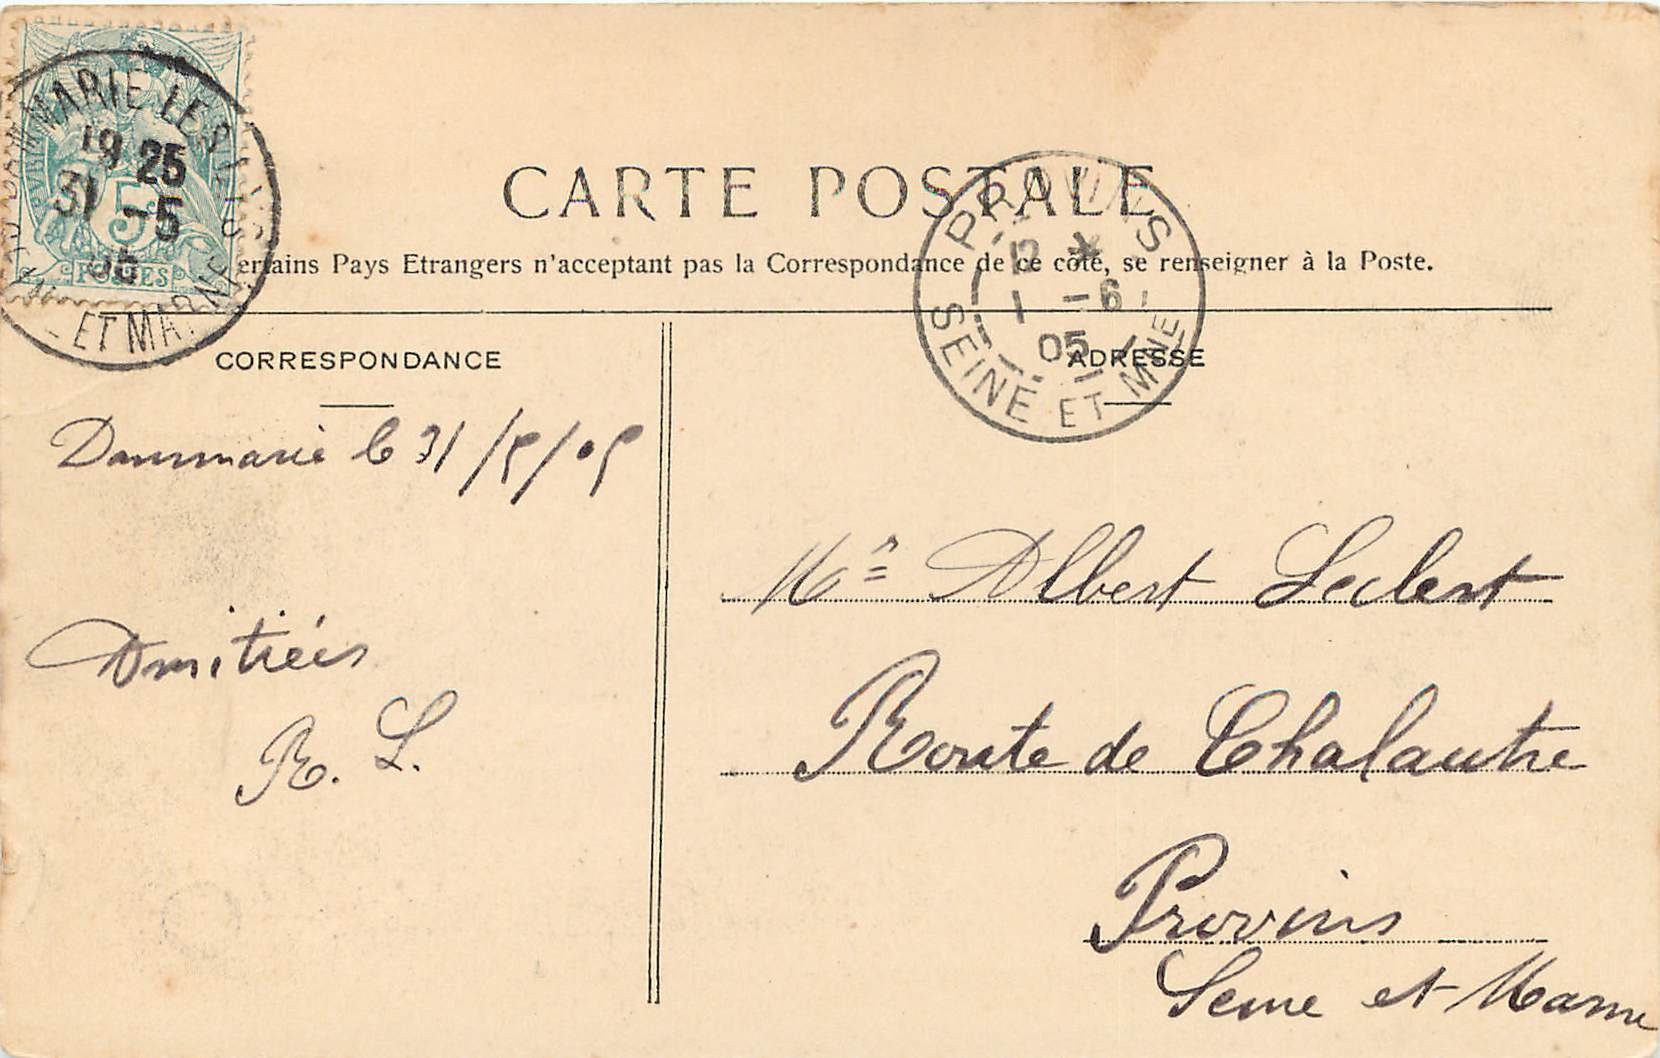 MARIE LES LYS
19 25
31 -5
05
5
POSTES
ET MARNE
CARTE POSTALE
ertains Pays Etrangers n'acceptant pas la Correspondance de ce côté, se renseigner à la Poste.
PROVINS
12 *
1 -6
05
SEINE ET MNE
CORRESPONDANCE
Dammarie le 31/5/05
Amitiées
R. L.
ADRESSE
Mr Albert Leclert
Route de Chalautre
Provins
Seine et Marne